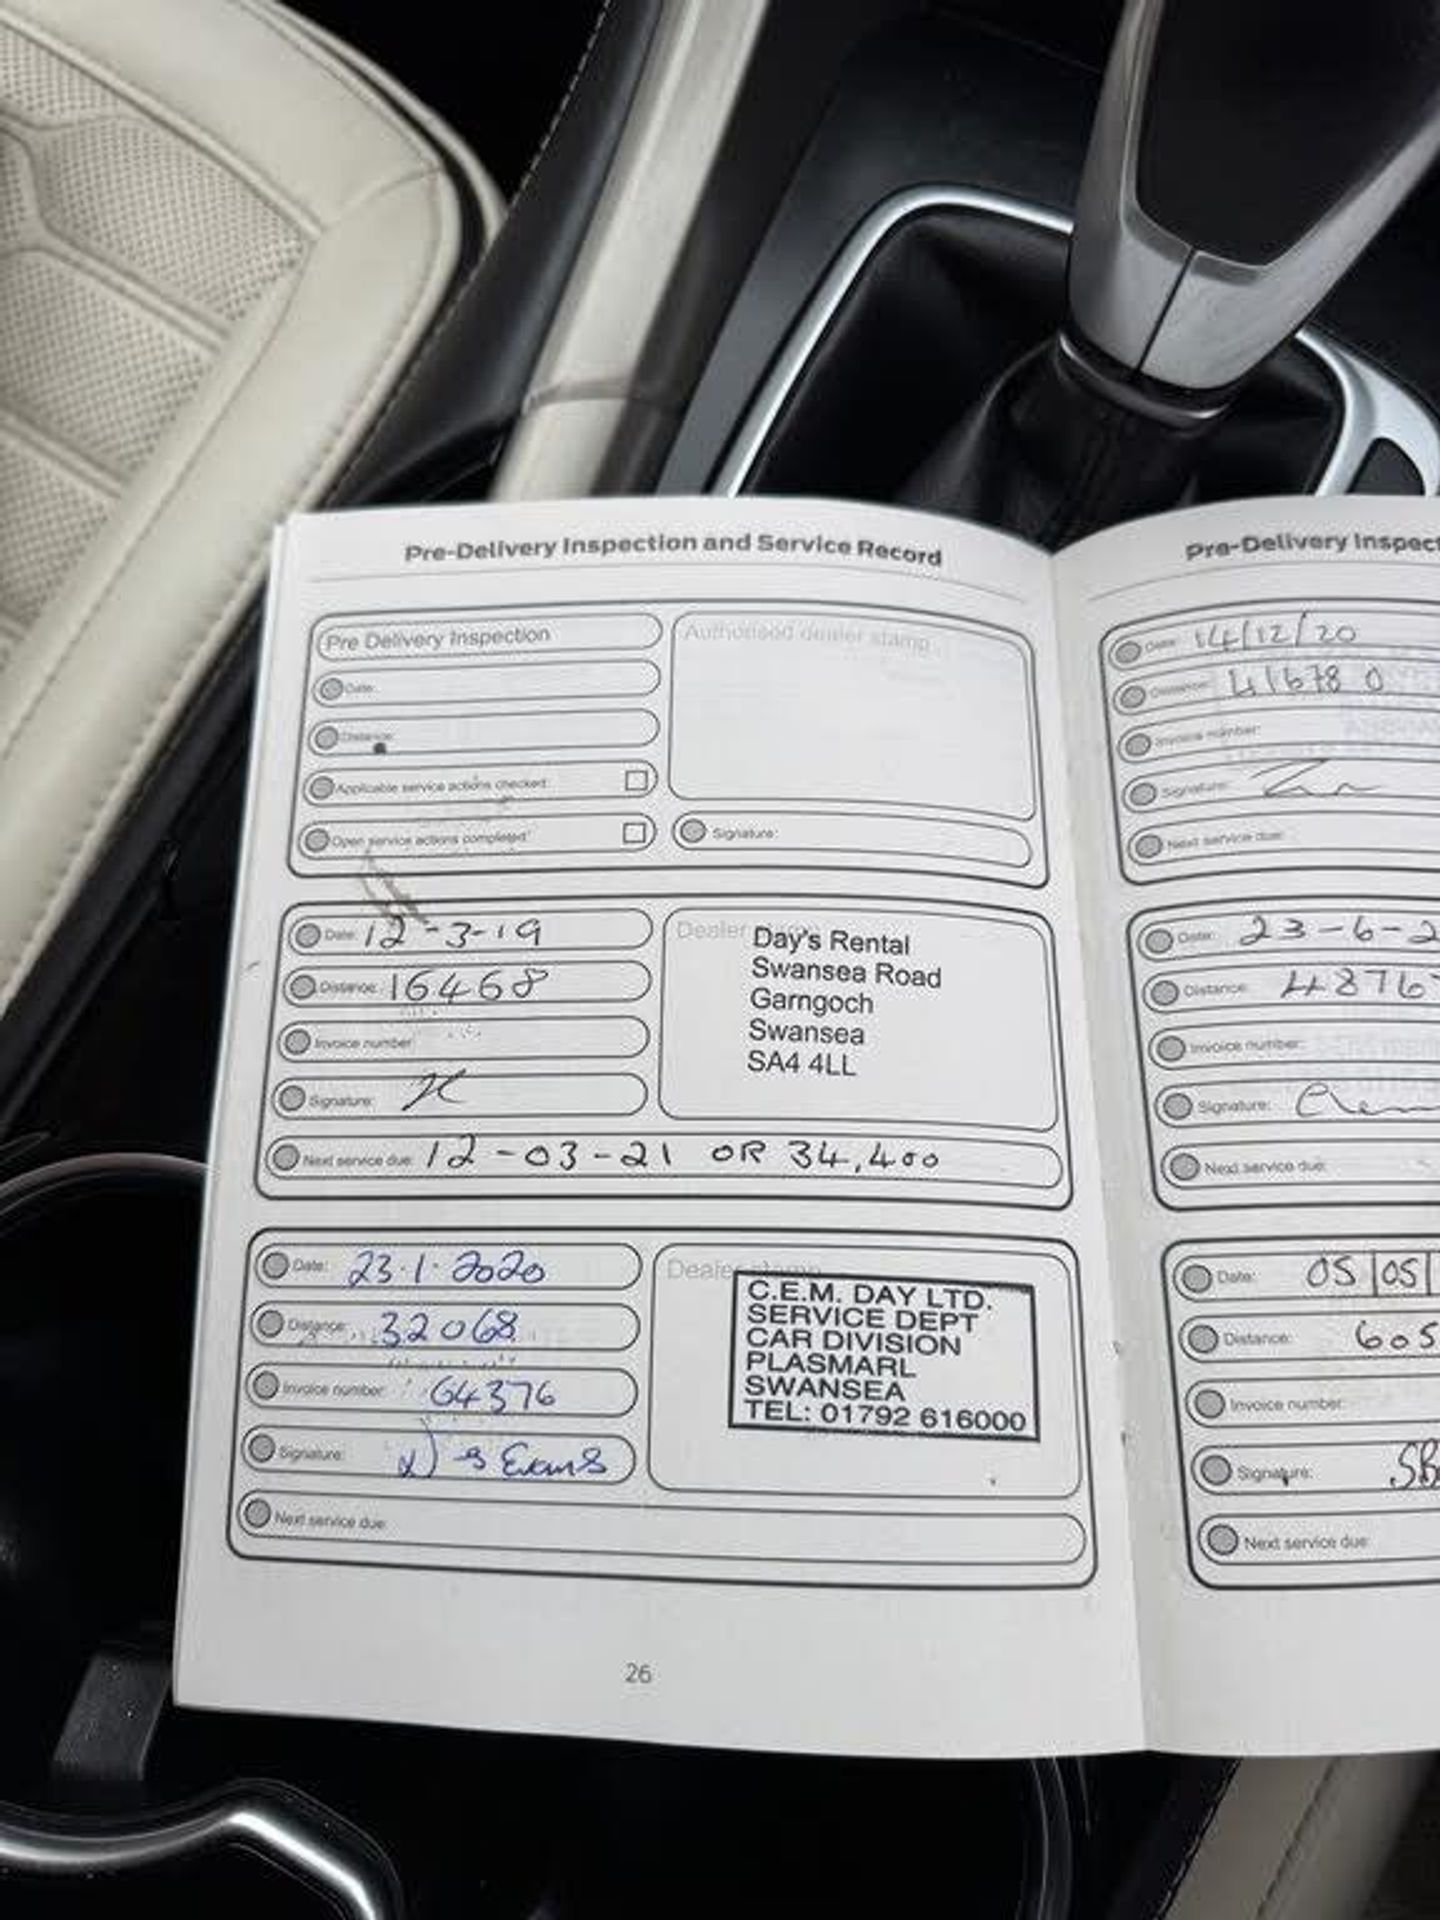 Pre-Delivery Inspection and Service Record
Pre Delivery Inspection
Authorised dealer stamp
Date:
Distance:
Applicable service actions checked:
Open service actions completed:
Signature:
Date: 12-3-19
Distance: 16468
Invoice number
Signature:
Dealer
Day's Rental
Swansea Road
Garngoch
Swansea
SA4 4LL
Next service due: 12-03-21 OR 34,400
Date: 23.1.2020
Distance: 32068
Invoice number: 64376
Signature: Evans
Dealer stamp
C.E.M. DAY LTD.
SERVICE DEPT
CAR DIVISION
PLASMARL
SWANSEA
TEL: 01792 616000
Next service due:
26
Pre-Delivery Inspect
Date: 14/12/20
Distance: 41678
Invoice number:
Signature:
Next service due:
Date: 23-6-2
Distance: 4876
Invoice number:
Signature:
Next service due:
Date: 05/05/
Distance: 605
Invoice number:
Signature: SB
Next service due: